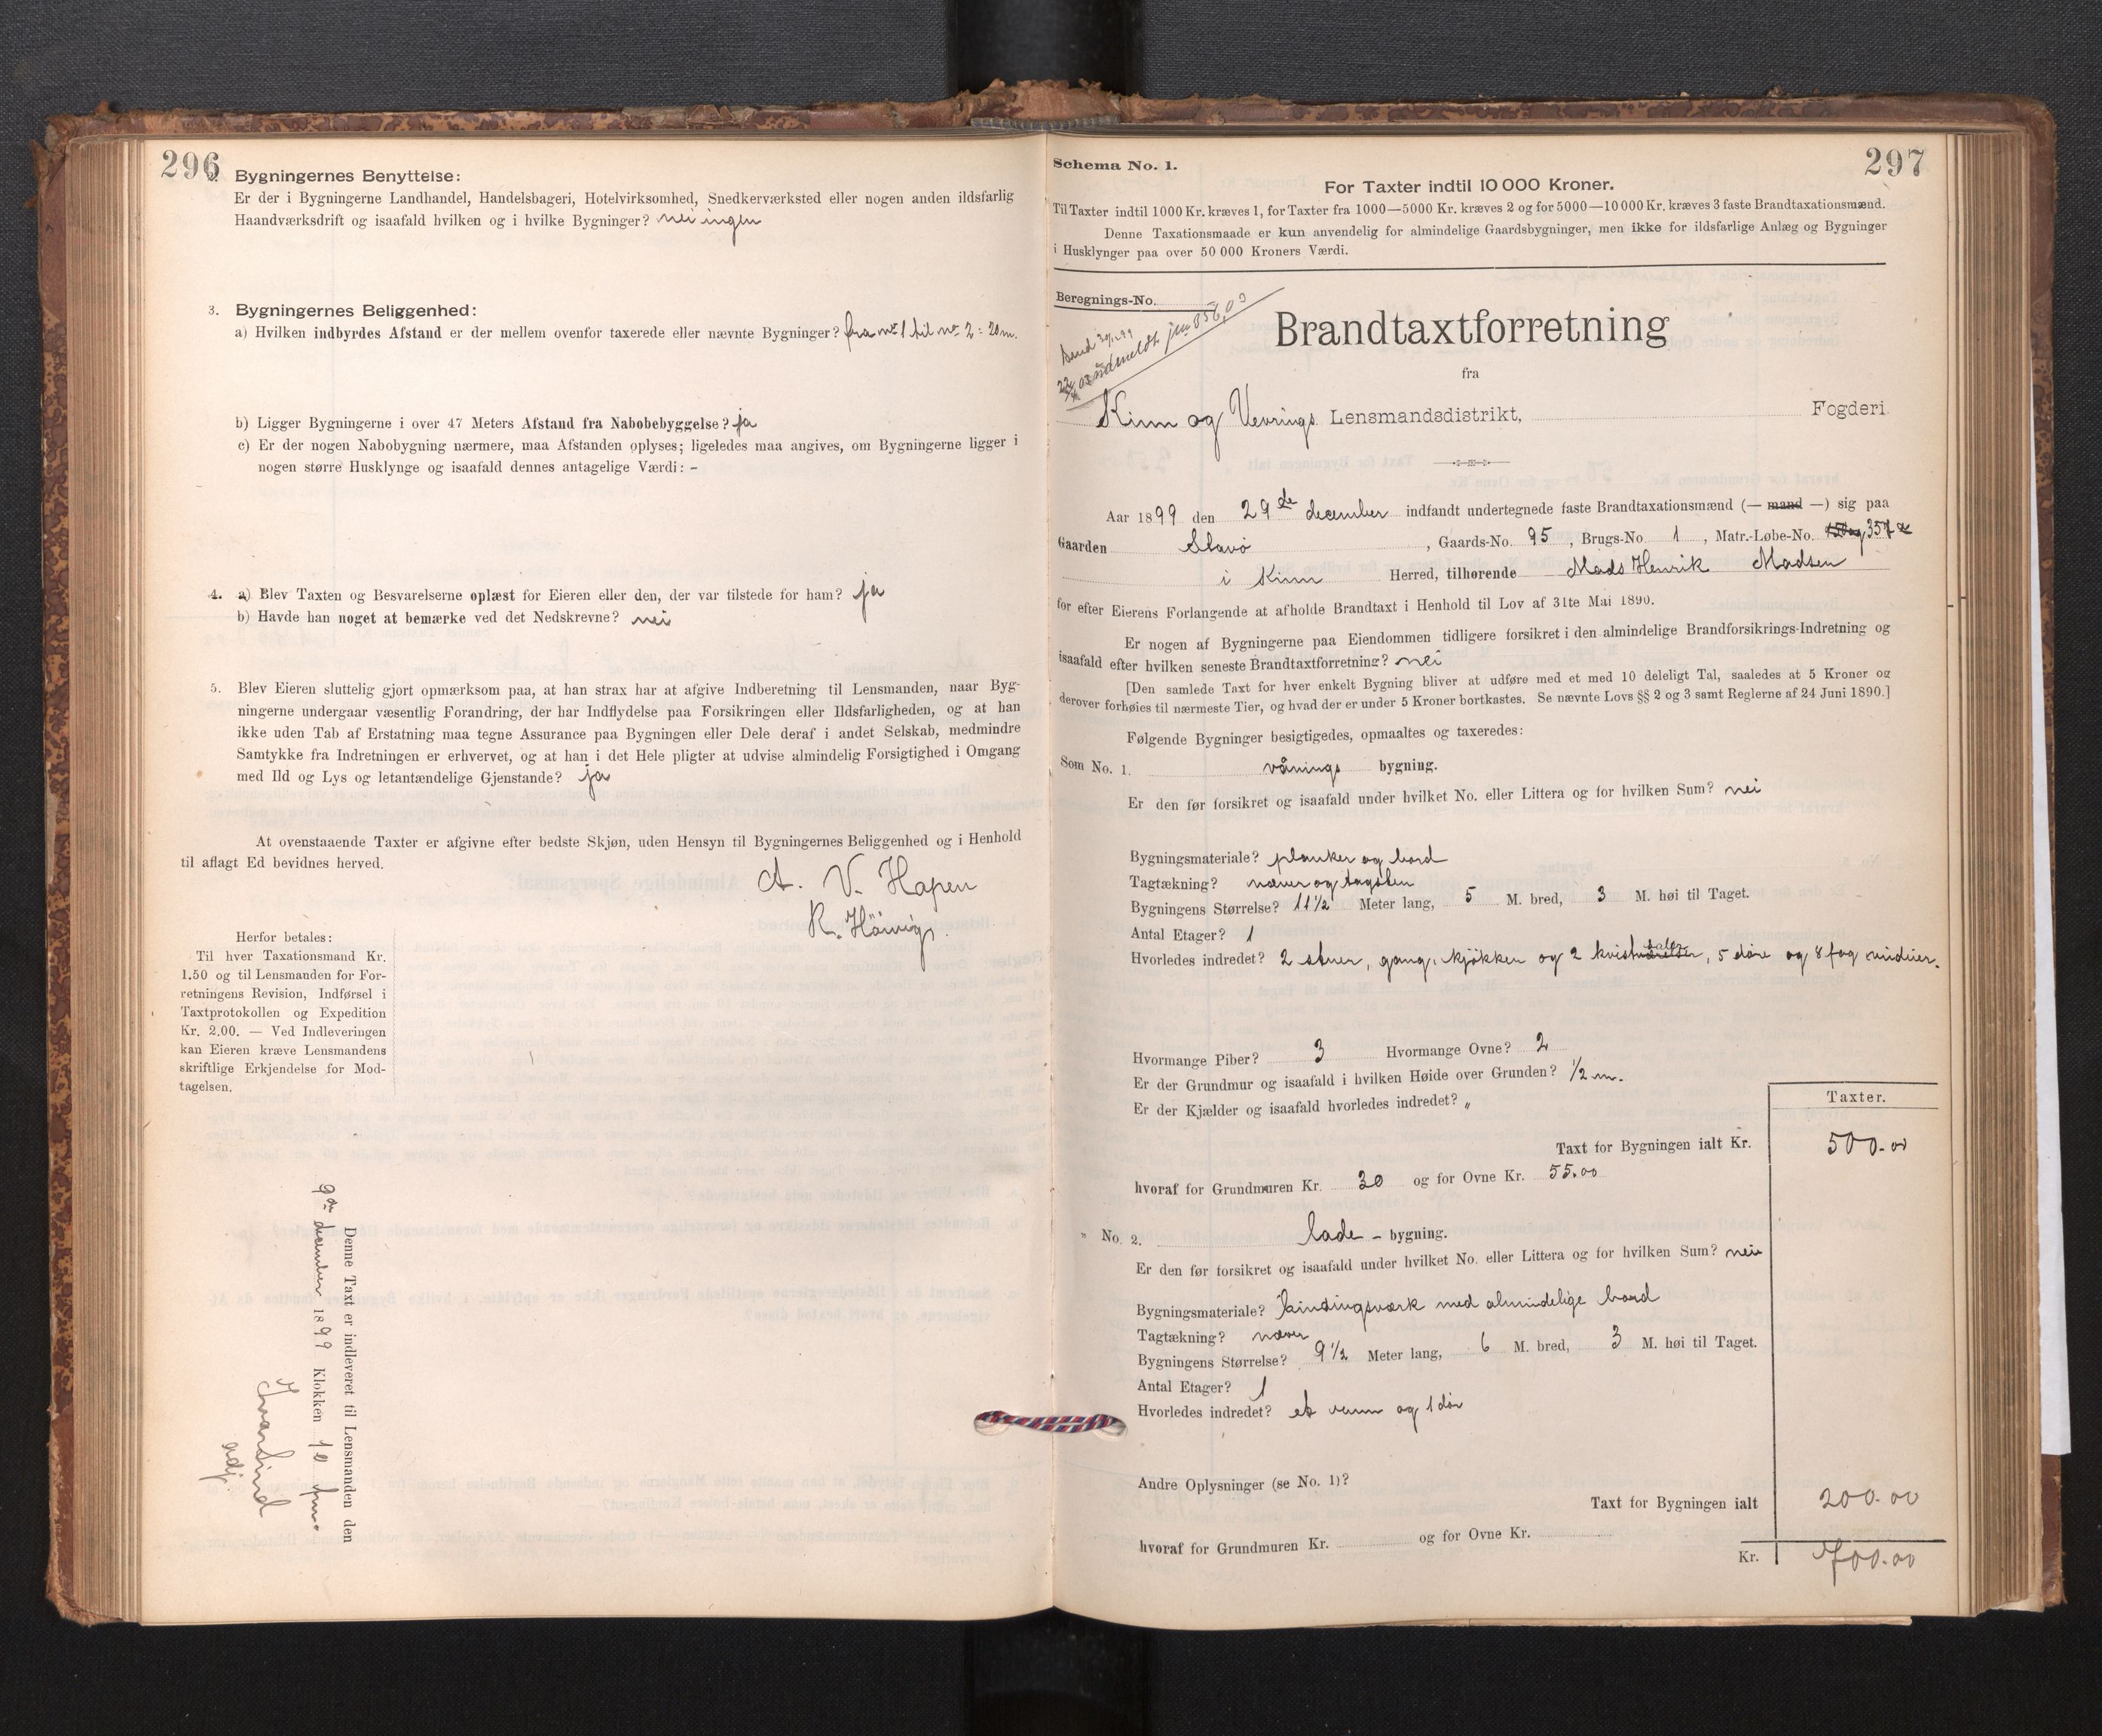 296
2. Bygningernes Benyttelse:
Er der i Bygningerne Landhandel, Handelsbageri, Hotelvirksomhed, Snedkerværksted eller nogen anden ildsfarlig
Haandværksdrift og isaafald hvilken og i hvilke Bygninger? nei ingen
3. Bygningernes Beliggenhed:
a) Hvilken indbyrdes Afstand er der mellem ovenfor taxerede eller nævnte Bygninger? fra nr 1 til nr 2 = 20 m.
b) Ligger Bygningerne i over 47 Meters Afstand fra Nabobebyggelse? ja
c) Er der nogen Nabobygning nærmere, maa Afstanden oplyses; ligeledes maa angives, om Bygningerne ligger i
nogen større Husklynge og isaafald dennes antagelige Værdi: -
4. a) Blev Taxten og Besvarelserne oplæst for Eieren eller den, der var tilstede for ham? ja
b) Havde han noget at bemærke ved det Nedskrevne? nei
5. Blev Eieren sluttelig gjort opmærksom paa, at han strax har at afgive Indberetning til Lensmanden, naar Byg-
ningerne undergaar væsentlig Forandring, der har Indflydelse paa Forsikringen eller Ildsfarligheden, og at han
ikke uden Tab af Erstatning maa tegne Assurance paa Bygningen eller Dele deraf i andet Selskab, medmindre
Samtykke fra Indretningen er erhvervet, og at han i det Hele pligter at udvise almindelig Forsigtighed i Omgang
med Ild og Lys og letantændelige Gjenstande? ja
At ovenstaaende Taxter er afgivne efter bedste Skjøn, uden Hensyn til Bygningernes Beliggenhed og i Henhold
til aflagt Ed bevidnes herved.
A. V. Hapen
R. Høivig.
Herfor betales:
Til hver Taxationsmand Kr.
1.50 og til Lensmanden for For-
retningens Revision, Indførsel i
Taxtprotokollen og Expedition
Kr. 2.00. — Ved Indleveringen
kan Eieren kræve Lensmandens
skriftlige Erkjendelse for Mod-
tagelsen.
Denne Taxt er indleveret til Lensmanden den
9de december 1899 Klokken 10 fm.
adj.
297
Schema No. 1.
For Taxter indtil 10 000 Kroner.
Til Taxter indtil 1000 Kr. kræves 1, for Taxter fra 1000—5000 Kr. kræves 2 og for 5000—10 000 Kr. kræves 3 faste Brandtaxationsmænd.
Denne Taxationsmaade er kun anvendelig for almindelige Gaardsbygninger, men ikke for ildsfarlige Anlæg og Bygninger
i Husklynger paa over 50 000 Kroners Værdi.
Beregnings-No.
Brandtaxtforretning
fra
Kinn og Vevrings Lensmandsdistrikt, Fogderi
Aar 1899 den 29de december indfandt undertegnede faste Brandtaxationsmænd (— mand —) sig paa
Gaarden Stavø, Gaards-No. 95, Brugs-No. 1, Matr.-Løbe-No. 357 a
i Kinn Herred, tilhørende Mads Henrik Madsen
for efter Eierens Forlangende at afholde Brandtaxt i Henhold til Lov af 31te Mai 1890.
Er nogen af Bygningerne paa Eiendommen tidligere forsikret i den almindelige Brandforsikrings-Indretning og
isaafald efter hvilken seneste Brandtaxtforretning? nei
[Den samlede Taxt for hver enkelt Bygning bliver at udføre med et med 10 deleligt Tal, saaledes at 5 Kroner og
derover forhøies til nærmeste Tier, og hvad der er under 5 Kroner bortkastes. Se nævnte Lovs §§ 2 og 3 samt Reglerne af 24 Juni 1890.]
Følgende Bygninger besigtigedes, opmaaltes og taxeredes:
Som No. 1. vånings bygning.
Er den før forsikret og isaafald under hvilket No. eller Littera og for hvilken Sum? nei
Bygningsmateriale? planker og bord
Tagtækning? næver og tagsten
Bygningens Størrelse? 11 1/2 Meter lang, 5 M. bred, 3 M. høi til Taget.
Antal Etager? 1
Hvorledes indredet? 2 stuer, gang, kjøkken og 2 kvistsaler, 5 døre og 8 fag vinduer.
Hvormange Piber? 3 Hvormange Ovne? 2
Er der Grundmur og isaafald i hvilken Høide over Grunden? 1/2 m.
Er der Kjælder og isaafald hvorledes indredet? „
Taxter.
Taxt for Bygningen ialt Kr. 500.00
hvoraf for Grundmuren Kr. 30 og for Ovne Kr. 55.00
" No. 2. lade - bygning.
Er den før forsikret og isaafald under hvilket No. eller Littera og for hvilken Sum? nei
Bygningsmateriale? bindingsværk med almindelige bord
Tagtækning? næver
Bygningens Størrelse? 9 1/2 Meter lang, 6 M. bred, 3 M. høi til Taget.
Antal Etager? 1
Hvorledes indredet? et rum og 1 dør
Andre Oplysninger (se No. 1)?
Taxt for Bygningen ialt 200.00
hvoraf for Grundmuren Kr. og for Ovne Kr.
Kr. 700.00